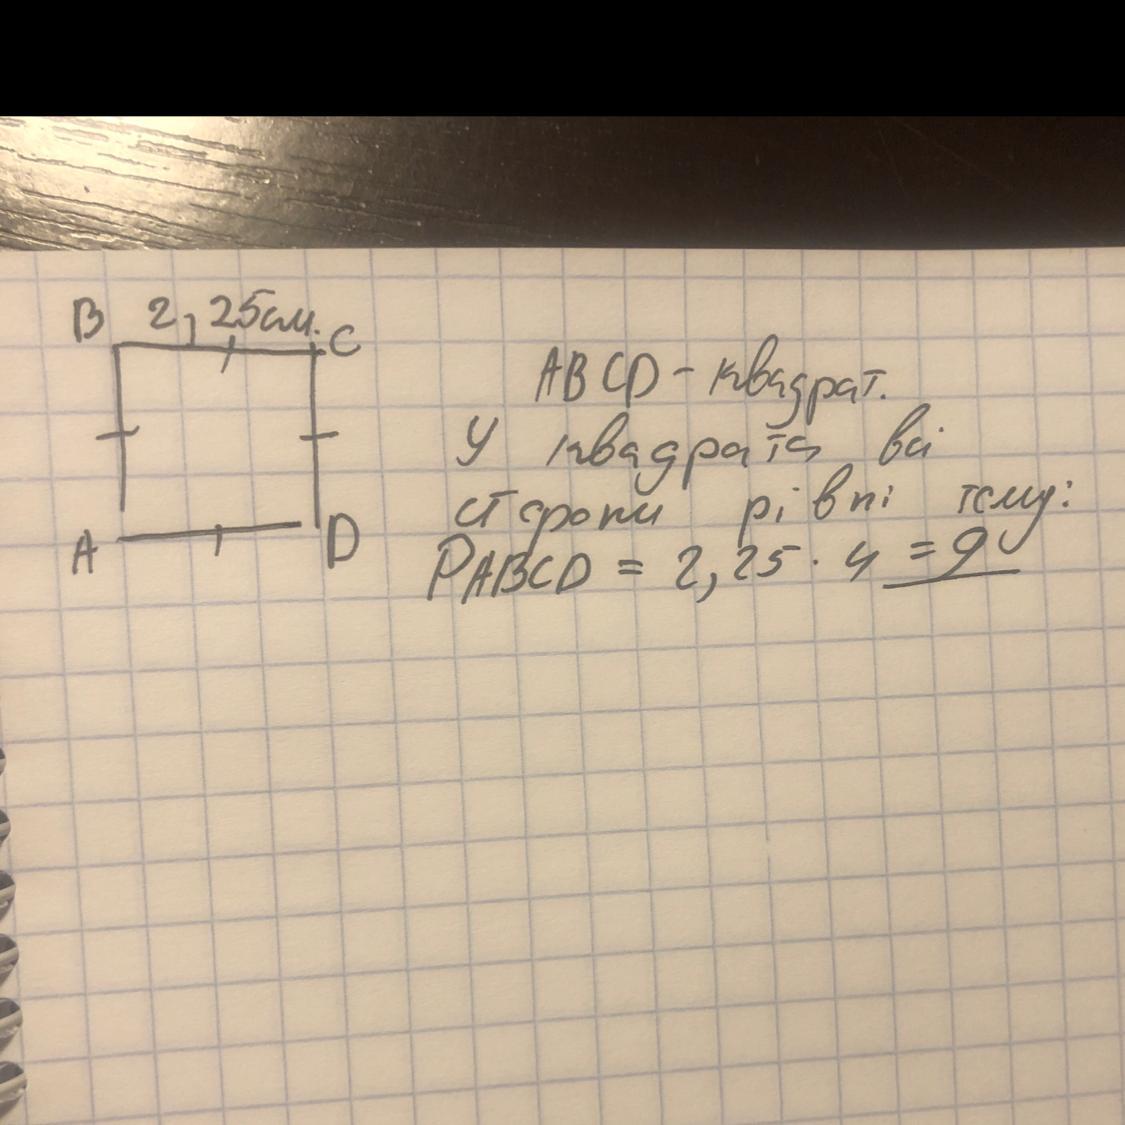 B 2,25см. C
A D
ABCD - квадрат.
У квадрата всі
сторони рівні тому:
PABCD = 2,25 · 4 = 9